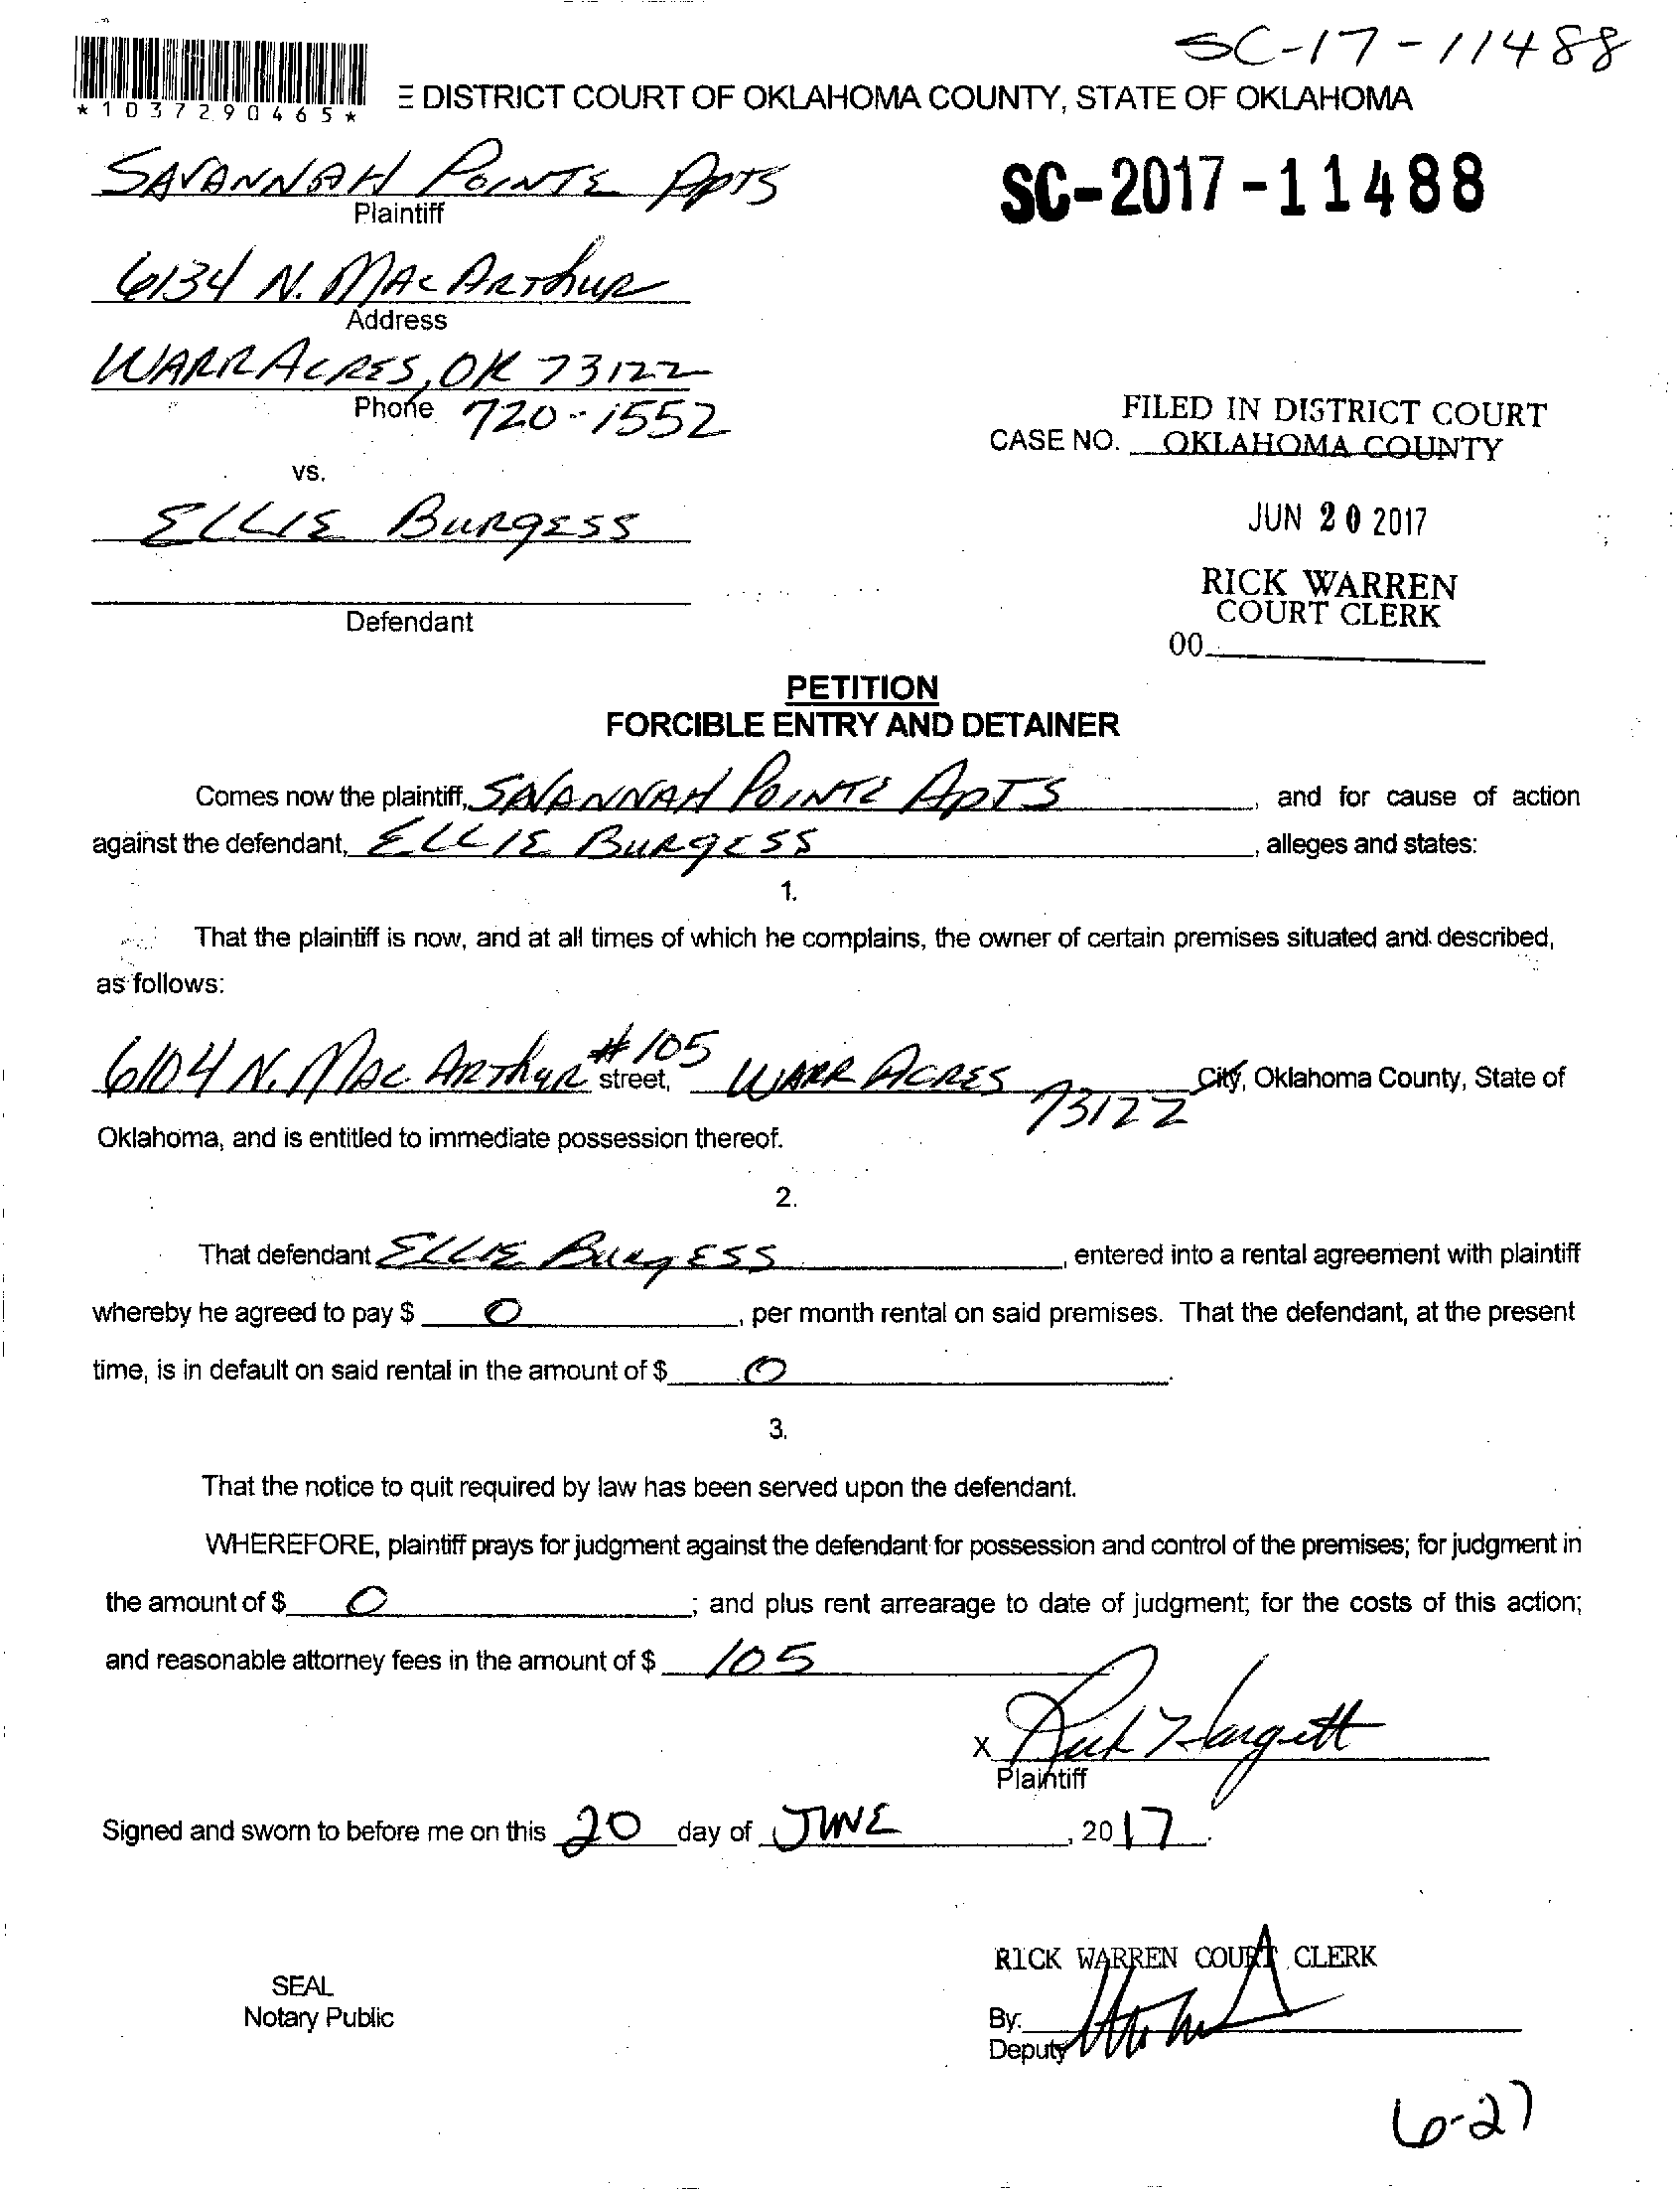 SC-17-11488
*1037290465*
DISTRICT COURT OF OKLAHOMA COUNTY, STATE OF OKLAHOMA
SAVANNAH POINTE APTS
Plaintiff
SC-2017-11488
6134 N. MAC ARTHUR
Address
WARR ACRES, OK 73122
Phone 720-1552
FILED IN DISTRICT COURT
CASE NO. OKLAHOMA COUNTY
vs.
ELLIE BURGESS
JUN 20 2017
RICK WARREN
COURT CLERK
Defendant
00
PETITION
FORCIBLE ENTRY AND DETAINER
Comes now the plaintiff, SAVANNAH POINTE APTS, and for cause of action
against the defendant, ELLIE BURGESS, alleges and states:
1.
That the plaintiff is now, and at all times of which he complains, the owner of certain premises situated and described,
as follows:
6104 N. MAC ARTHUR #105 street, WARR ACRES 73122 City, Oklahoma County, State of
Oklahoma, and is entitled to immediate possession thereof.
2.
That defendant ELLIE BURGESS, entered into a rental agreement with plaintiff
whereby he agreed to pay $ 0, per month rental on said premises. That the defendant, at the present
time, is in default on said rental in the amount of $ 0.
3.
That the notice to quit required by law has been served upon the defendant.
WHEREFORE, plaintiff prays for judgment against the defendant for possession and control of the premises; for judgment in
the amount of $ 0; and plus rent arrearage to date of judgment; for the costs of this action;
and reasonable attorney fees in the amount of $ 105
X Hargett
Plaintiff
Signed and sworn to before me on this 20 day of JUNE, 2017.
RICK WARREN COURT CLERK
SEAL
Notary Public
By:
Deputy
6-27